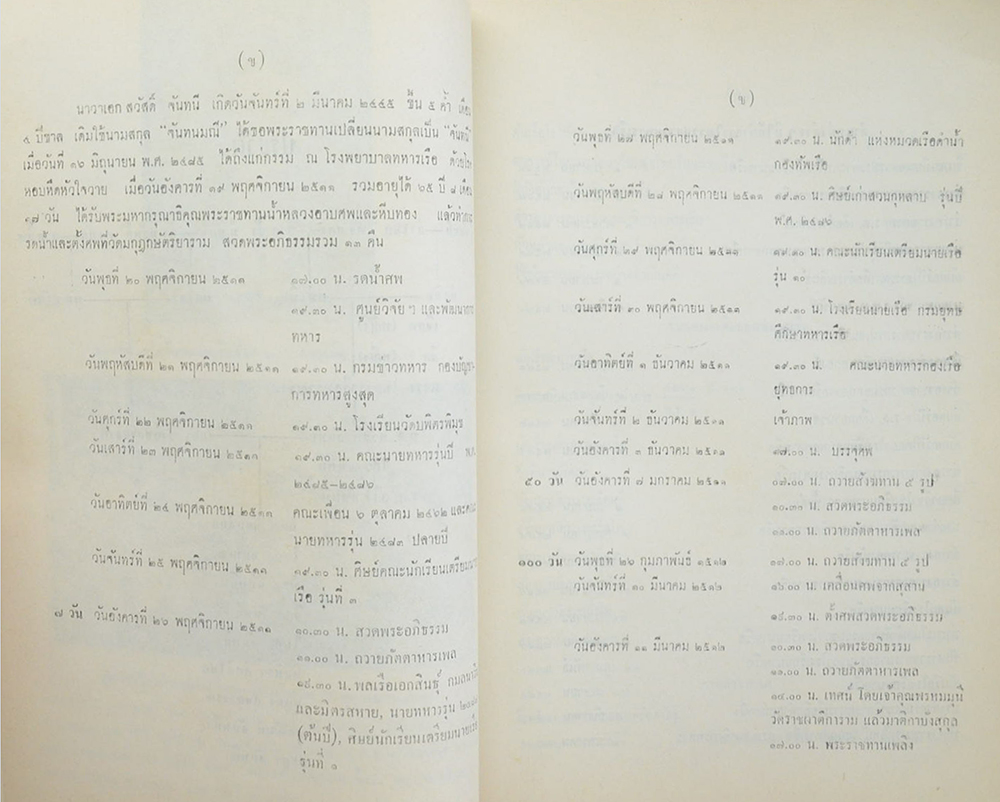 (ข)
นาวาเอก สวัสดิ์ จันทนี เกิดวันจันทร์ที่ ๒ มีนาคม ๒๔๔๕ ขึ้น ๕ ค่ำ
๔ ปีขาล เดิมใช้นามสกุล "จันทนมณี" ได้ขอพระราชทานเปลี่ยนนามสกุลเป็น "จันทนี"
เมื่อวันที่ ๑๖ มิถุนายน พ.ศ. ๒๔๘๕ ได้ถึงแก่กรรม ณ โรงพยาบาลทหารเรือ ด้วยโรค
หอบหืดหัวใจวาย เมื่อวันอังคารที่ ๑๙ พฤศจิกายน ๒๕๑๑ รวมอายุได้ ๖๕ ปี ๘ เดือน
๑๗ วัน ได้รับพระมหากรุณาธิคุณพระราชทานน้ำหลวงอาบศพและหีบทอง แล้วทำการ
รดน้ำและตั้งศพที่วัดมกุฎกษัตริยาราม สวดพระอภิธรรมรวม ๑๓ คืน
วันพุธที่ ๒๐ พฤศจิกายน ๒๕๑๑ ๑๗.๐๐ น. รดน้ำศพ
๑๙.๓๐ น. ศูนย์วิจัยฯ และพัฒนาการ
ทหาร
วันพฤหัสบดีที่ ๒๑ พฤศจิกายน ๒๕๑๑ ๑๙.๓๐ น. กรมข่าวทหาร กองบัญชา-
การทหารสูงสุด
วันศุกร์ที่ ๒๒ พฤศจิกายน ๒๕๑๑ ๑๙.๓๐ น. โรงเรียนวัดบพิตรพิมุข
วันเสาร์ที่ ๒๓ พฤศจิกายน ๒๕๑๑ ๑๙.๓๐ น. คณะนายทหารรุ่นปี พ.ศ.
๒๔๘๕-๒๔๘๖
วันอาทิตย์ที่ ๒๔ พฤศจิกายน ๒๕๑๑ คณะเพื่อน ๖ ตุลาคม ๒๔๖๒ และ
นายทหารรุ่น ๒๔๘๓ ปลายปี
วันจันทร์ที่ ๒๕ พฤศจิกายน ๒๕๑๑ ๑๙.๓๐ น. ศิษย์คณะนักเรียนเตรียมนาย
เรือ รุ่นที่ ๓
๗ วัน วันอังคารที่ ๒๖ พฤศจิกายน ๒๕๑๑ ๑๐.๓๐ น. สวดพระอภิธรรม
๑๑.๐๐ น. ถวายภัตตาหารเพล
๑๙.๓๐ น. พลเรือเอกสินธุ์ กมลนาวิน
และมิตรสหาย, นายทหารรุ่น
(ต้นปี), ศิษย์นักเรียนเตรียมนายเรือ
รุ่นที่ ๑
(ข)
วันพุธที่ ๒๗ พฤศจิกายน ๒๕๑๑ ๑๙.๓๐ น. นักดำ แห่งหมวดเรือดำน้ำ
กองทัพเรือ
วันพฤหัสบดีที่ ๒๘ พฤศจิกายน ๒๕๑๑ ๑๙.๓๐ น. ศิษย์เก่าสวนกุหลาบ รุ่นปี
พ.ศ. ๒๔๘๖
วันศุกร์ที่ ๒๙ พฤศจิกายน ๒๕๑๑ ๑๙.๓๐ น. คณะนักเรียนเตรียมนายเรือ
รุ่น ๑๐
วันเสาร์ที่ ๓๐ พฤศจิกายน ๒๕๑๑ ๑๙.๓๐ น. โรงเรียนนายเรือ กรมยุทธ
ศึกษาทหารเรือ
วันอาทิตย์ที่ ๑ ธันวาคม ๒๕๑๑ ๑๙.๓๐ น. คณะนายทหารกองเรือ
ยุทธการ
วันจันทร์ที่ ๒ ธันวาคม ๒๕๑๑ เจ้าภาพ
วันอังคารที่ ๓ ธันวาคม ๒๕๑๑ ๑๗.๐๐ น. บรรจุศพ
๕๐ วัน วันอังคารที่ ๗ มกราคม ๒๕๑๑ ๐๗.๐๐ น. ถวายสังฆทาน ๕ รูป
๑๐.๓๐ น. สวดพระอภิธรรม
๑๑.๐๐ น. ถวายภัตตาหารเพล
๑๐๐ วัน วันพุธที่ ๒๖ กุมภาพันธ์ ๒๕๑๒ ๑๗.๐๐ น. ถวายสังฆทาน ๕ รูป
วันจันทร์ที่ ๑๐ มีนาคม ๒๕๑๒ ๑๖.๐๐ น. เคลื่อนศพจากสุสาน
๑๙.๓๐ น. ตั้งศพสวดพระอภิธรรม
วันอังคารที่ ๑๑ มีนาคม ๒๕๑๒ ๑๐.๓๐ น. สวดพระอภิธรรม
๑๑.๐๐ น. ถวายภัตตาหารเพล
๑๔.๐๐ น. เทศน์ โดยเจ้าคุณพรหมมุนี
วัดราชผาติการาม แล้วมาติกาบังสุกุล
๑๗.๐๐ น. พระราชทานเพลิง